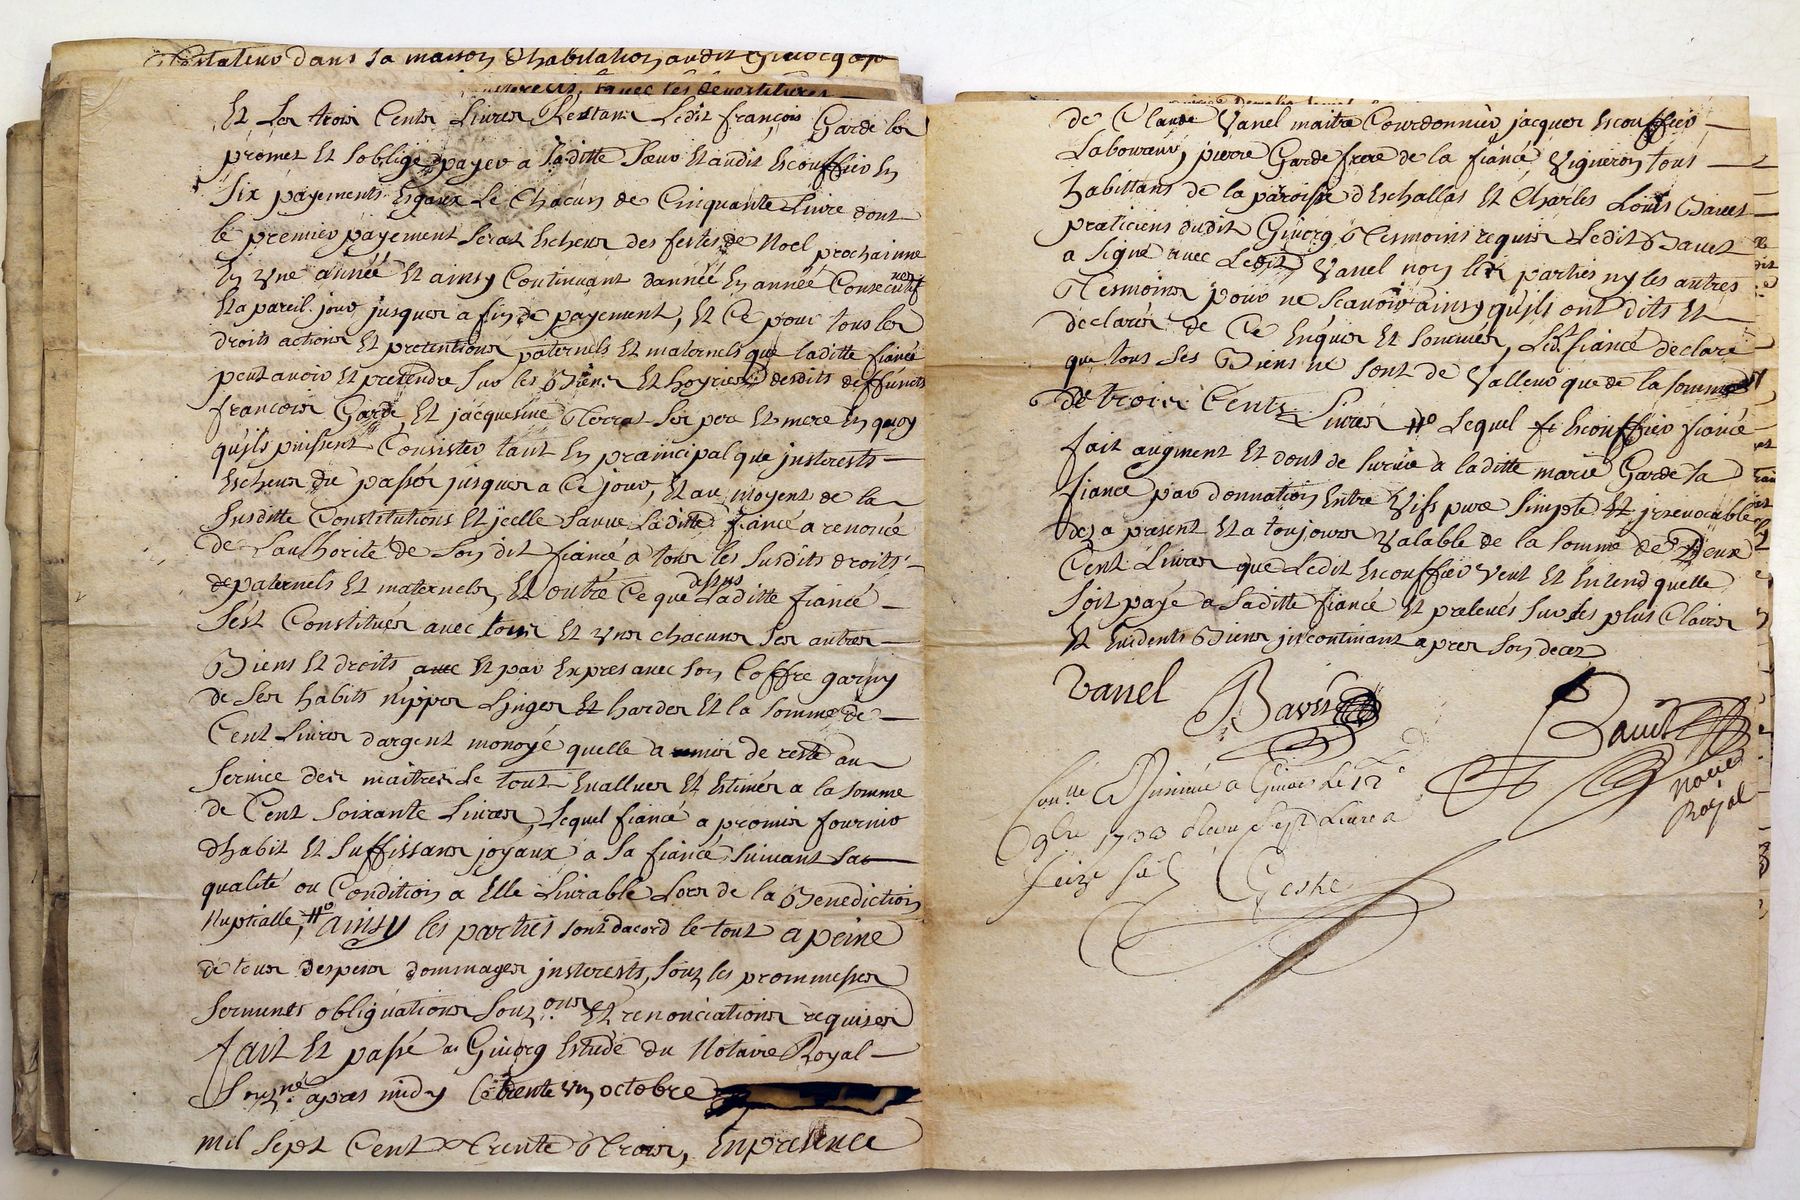 dans sa maison d'habitation audit Givorg
avec les
Et Les trois Cents Livres Restans Ledit françois Garde les
promet Et soblige payer a Laditte Sœur Et audit Escouffier En
Six payements Esgaux Le Chacun de Cinquante Livre dont
le premier payement Serat Escheux des festes de Noel prochainne
En Une année Et ainsy Continuant dannée En année Consecutif
Et a pareil jour jusques a fin de payement, Et Ce pour tous les
droits actions Et pretentions paternels Et maternels que laditte fiancé
peut avoir Et pretendre Sur les Biens Et hoyries desdits deffuncts
francois Garde, Et jacquesme Terrat Ses pere Et mere En quoy
quils puissent Consister tant En praincipal que jnsterests
Escheus du passés jusques a Ce jour, Et au moyent de la
Susditte Constitutions Et jcelle Sauve Laditte fiancé a renoncé
de Lauthorité de Son dit fiancé a tous les Susdits droits
paternels Et maternels, Et outre Ce que dessus Laditte fiancé
S'est Constitués avec tous Et Uns chacuns Ses autres
Biens Et droits avec Et par Expres avec Son Coffre garny
de Ses habits nippes Linges Et hardes Et la Somme de
Cent Livres dargent monoyé quelle a de reste au
Service des maitres Le tout Evallues Et Estimés a la Somme
de Cent Soixante Livres, Lequel fiancé a promis fournir
dhabit Et Suffissans joyaux a Sa fiancé Suivant Sa
qualité ou Condition a Elle Livrable Lors de la Benediction
Nuptialle, ainsy les parties sont dacord le tout a peine
de tous despens dommages jnsterests, Souz les prommesses
Serments obligations Souz.ons Et renonciations requises
fait Et passé a Givorg Estude du Notaire Royal
Souz.né apres midy Ce trente Un octobre
mil Sept Cent Trente Trois, En presence
de Claude Vanel maitre Courdonnier jacques Escouffier
Laboureur, pierre Garde frere de la fiancé, Vigneron tous
habittans de la paroisse d'Eschallas Et Charles Louis Bavet
praticiens dudit Givorg Tesmoins requis Ledit Bavet
a Signé avec Ledit Vanel non les parties ny les autres
Tesmoins pour ne Scavoir ainsy quils ont dits Et
declarés de Ce Enquis Et Sommés, Ledit fiancé declare
que tous Ses Biens ne sont de Valleur que de la somme
de trois Cents Livres Lequel Escouffier fiancé
fait augment Et dont de Survie a laditte marie Garde Sa
fiancé par donnation Entre Vifs pure Simple Et jrrevocable
des a present Et a toujours Valable de la Somme de Deux
Cent Livres que Ledit Escouffier Veut Et Entend quelle
Soit payé a Saditte fiancé Et prelevés Sur Ses plus Clairs
Et Evidents Biens jncontinant apres Son decez
Vanel Bavet
Notaire
Royal
Con.llé a Givors Le 12e
9bre 1733 Livres
Seize